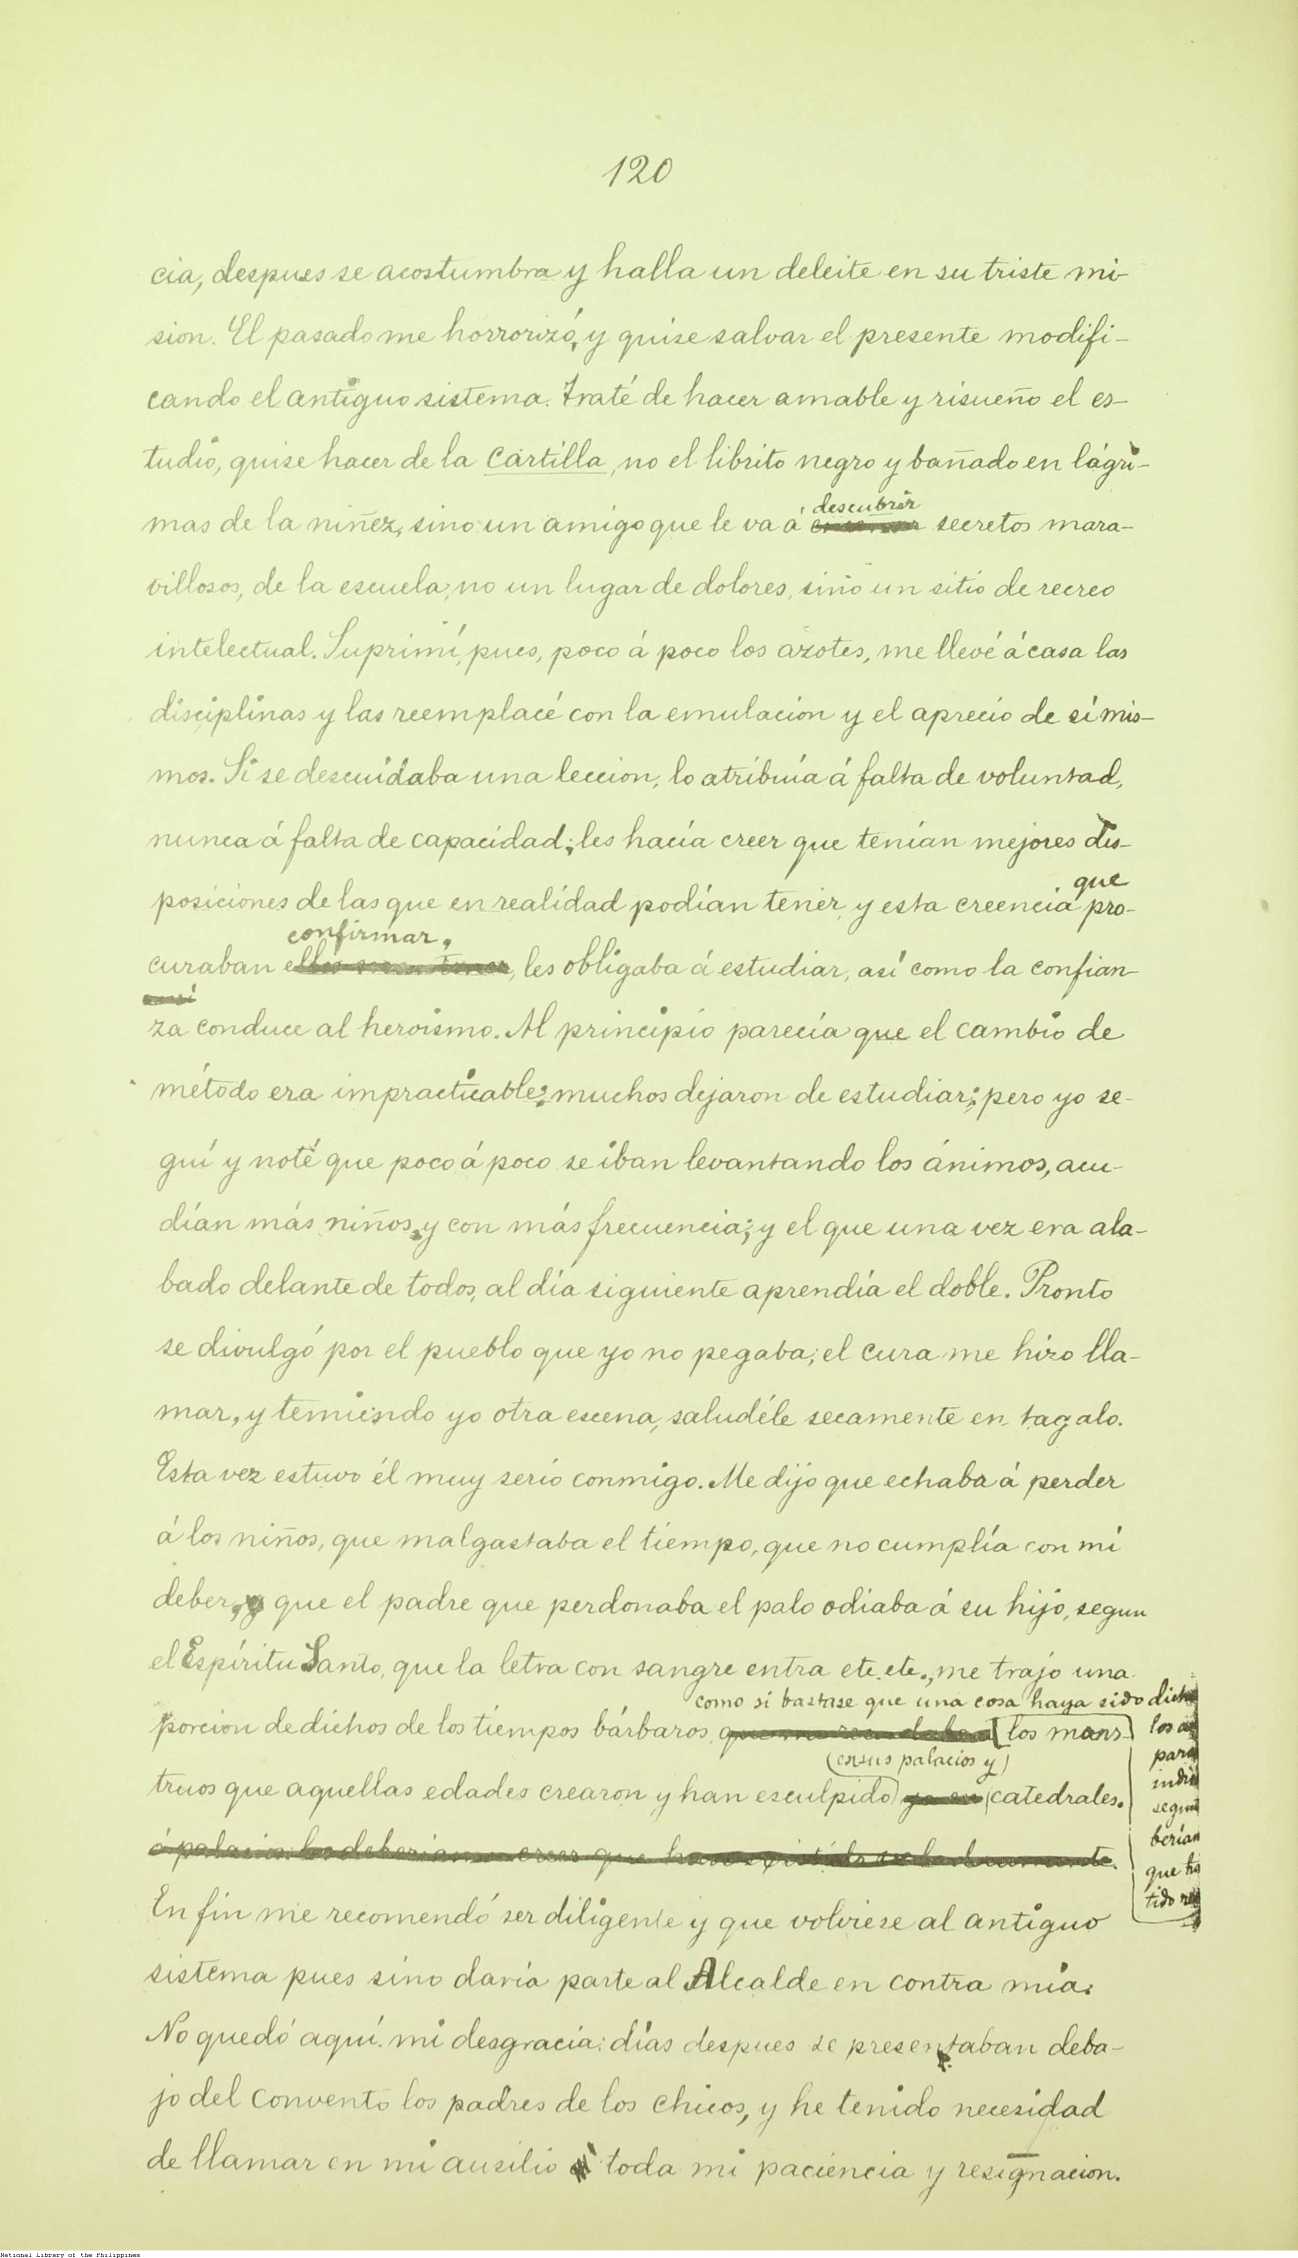 120
cia, despues se acostumbra y halla un deleite en su triste mi-
sion. El pasado me horrorizó, y quise salvar el presente modifi-
cando el antiguo sistema. Traté de hacer amable y risueño el es-
tudio, quise hacer de la cartilla, no el librito negro y bañado en lágri-
descubrir
mas de la niñez, sino un amigo que le va á secretos mara-
villosos, de la escuela, no un lugar de dolores, sino un sitio de recreo
intelectual. Suprimí, pues, poco á poco los azotes, me llevé á casa las
disciplinas y las reemplacé con la emulacion y el aprecio de sí mis-
mos. Si se descuidaba una leccion, lo atribuía á falta de voluntad,
nunca á falta de capacidad; les hacía creer que tenían mejores dis-
que
posiciones de las que en realidad podían tener, y esta creencia pro-
confirmar,
curaban les obligaba á estudiar, así como la confian-
za conduce al heroismo. Al principio parecía que el cambio de
método era impracticable; muchos dejaron de estudiar; pero yo se-
guí y noté que poco á poco se iban levantando los ánimos, acu-
dían más niños, y con más frecuencia; y el que una vez era ala-
bado delante de todos, al día siguiente aprendía el doble. Pronto
se divulgó por el pueblo que yo no pegaba; el cura me hizo lla-
mar, y temiendo yo otra escena, saludéle secamente en tagalo.
Esta vez estuvo él muy serio conmigo. Me dijo que echaba á perder
á los niños, que malgastaba el tiempo, que no cumplía con mi
deber, que el padre que perdonaba el palo odiaba á su hijo, segun
el Espíritu Santo, que la letra con sangre entra etc. etc., me trajo una
como si bastase que una cosa haya sido dicha
porcion de dichos de los tiempos bárbaros, los mons-
los
(en sus palacios y)
para
truos que aquellas edades crearon y han esculpido catedrales.
segun
berían
que
tido
En fin me recomendó ser diligente y que volviese al antiguo
sistema pues sino daría parte al Alcalde en contra mía.
No quedó aquí mi desgracia: días despues se presentaban deba-
jo del convento los padres de los chicos, y he tenido necesidad
de llamar en mi ausilio toda mi paciencia y resignacion.
National Library of the Philippines